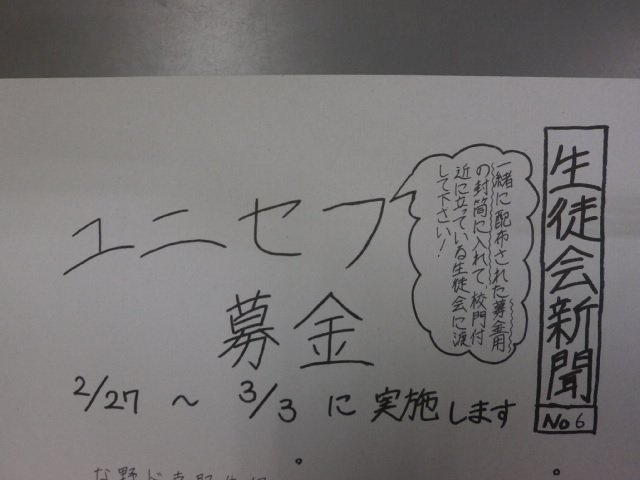 生徒会新聞
No6
一緒に配布された募金用
の封筒に入れて、校門付
近に立っている生徒会に渡
して下さい!
ユニセフ
募金
2/27 ~ 3/3 に実施します